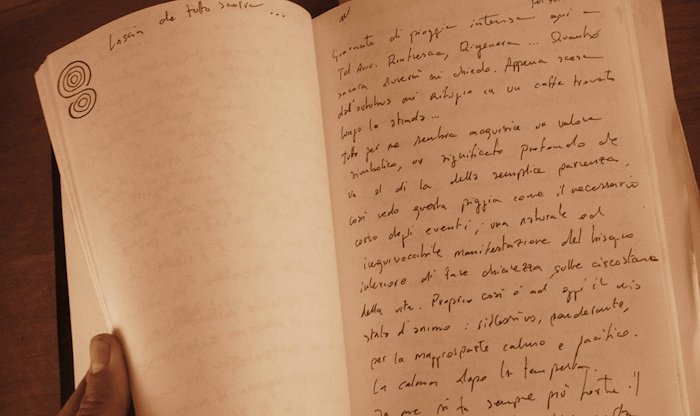 Lascia che tutto scorra ...
Giornate di pioggia intensa qui a
Tel Aviv. Rinfresca, Rigenera ... Quando
sarà mi chiedo. Appena scesa
dall'autobus mi rifugio in un caffe trovato
lungo la strada ...
tutto per me sembra acquisire un valore
simbolico, un significato profondo che
va al di la della semplice parvenza,
così vedo questa pioggia come il necessario
corso degli eventi; una naturale ed
inequivocabile manifestazione del bisogno
interiore di fare chiarezza sulle circostanze
della vita. Proprio così è ad oggi il mio
stato d'animo: riflessivo, ponderante,
per la maggiorparte calmo e pacifico.
La calma dopo la tempesta.
In me si fa sempre più forte il